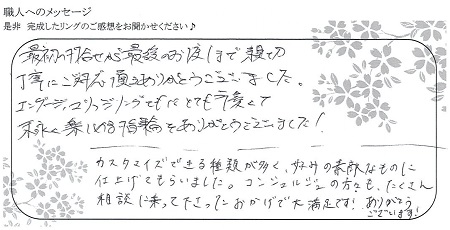 職人へのメッセージ
是非 完成したリングのご感想をお聞かせください♪
最初の打合せから最後のお渡しまで親切
丁寧にご対応頂きありがとうございました。
エンゲージ、マリッジリングどちらもとても可愛くて
末永く楽しめる指輪をありがとうございました!
カスタマイズできる種類が多く、好みの素敵なものに
仕上げてもらいました。コンシェルジュの方々も、たくさん
相談に乗って下さったおかげで大満足です!ありがとう
ございます!